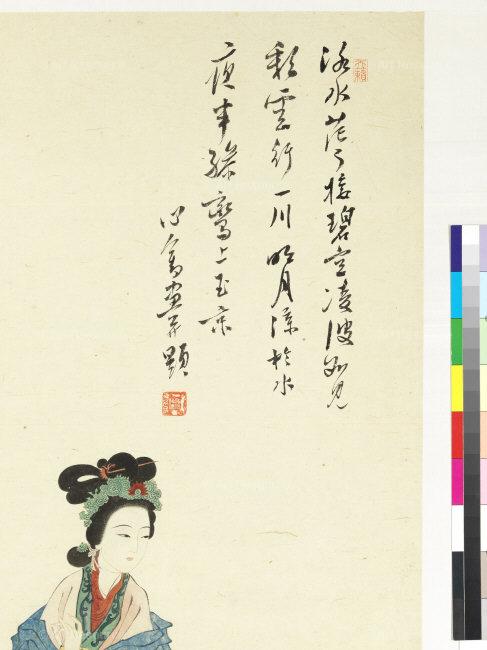 洛水茫々接碧空凌波如見
彩雲行一川明月涼於水
夜半驂鸞上玉京
心畬畫并題